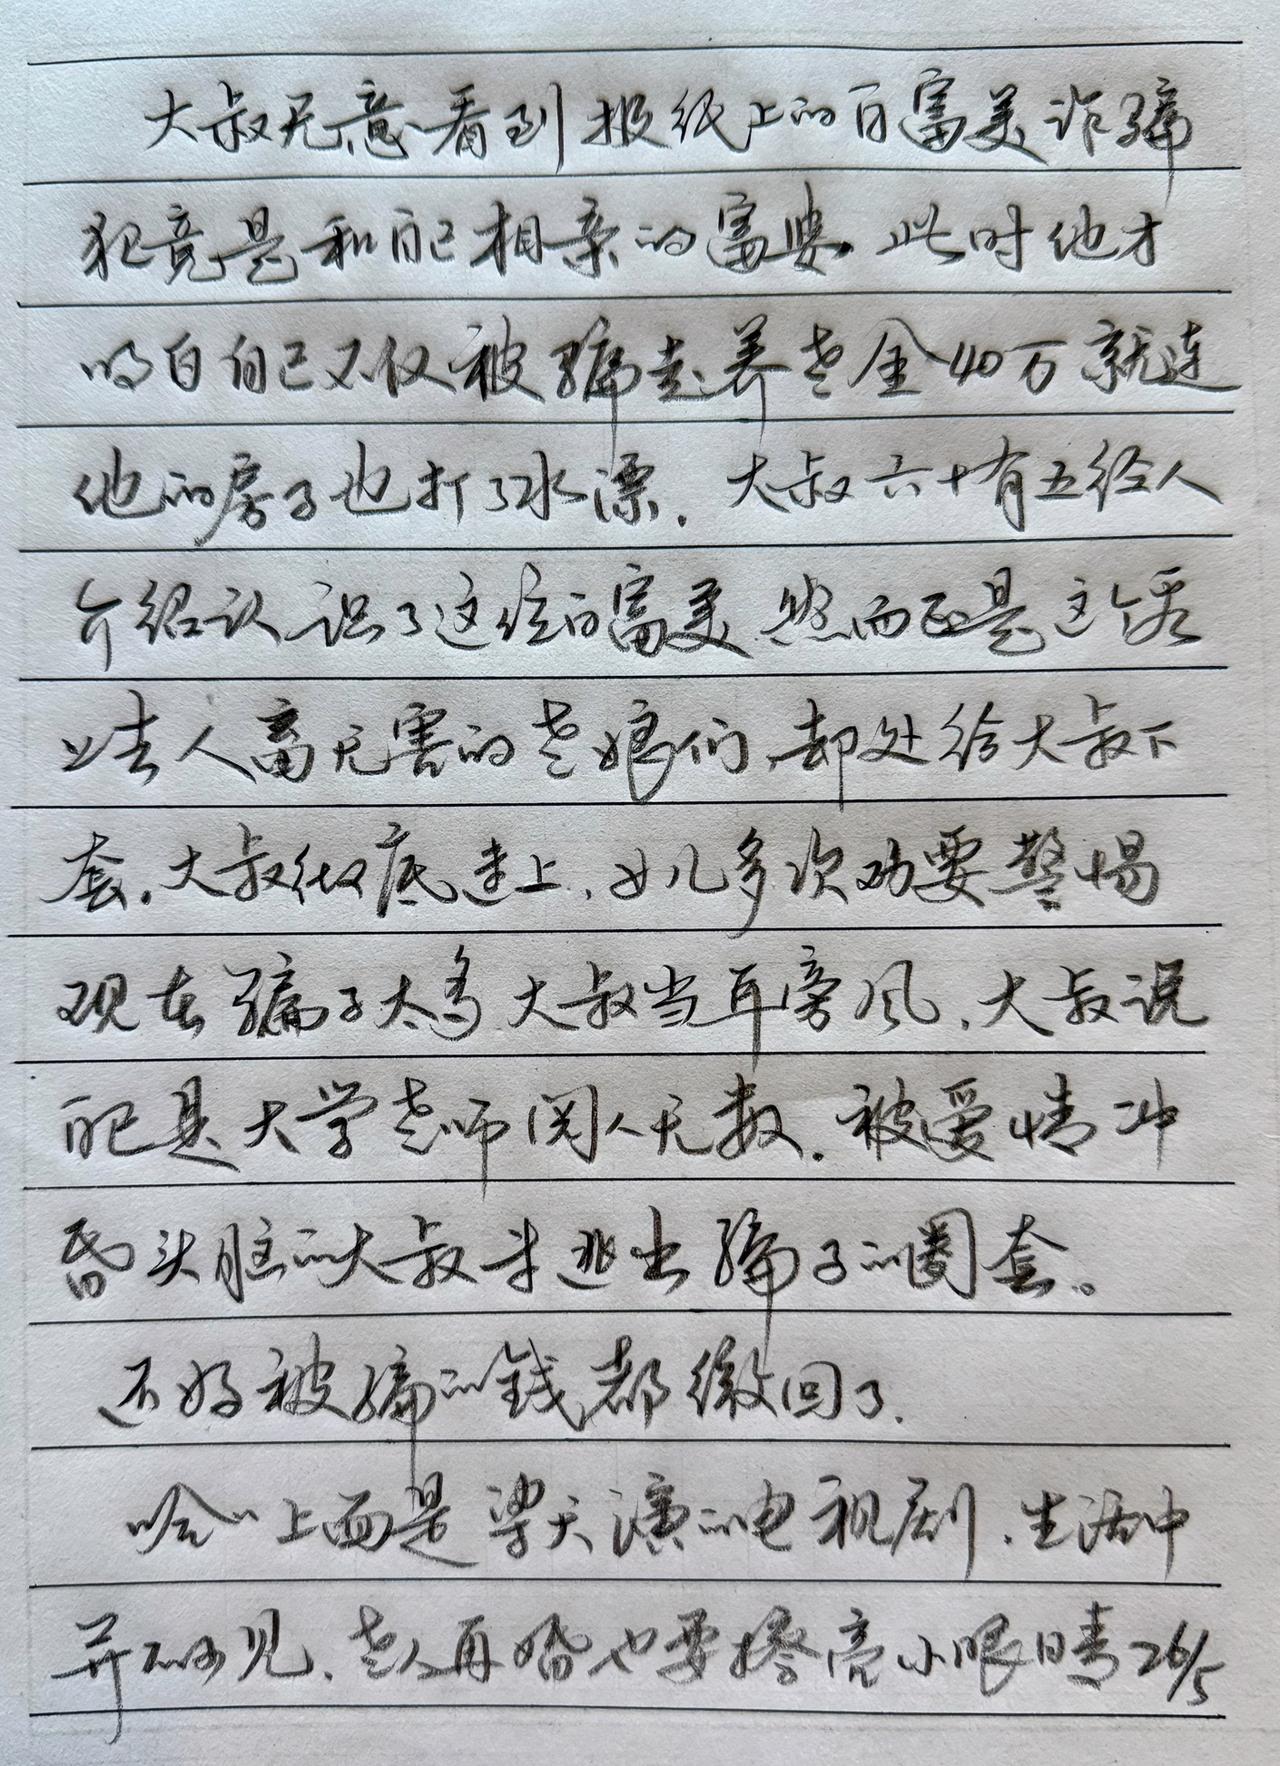 大叔无意看到报纸上的白富美诈骗
犯竟是和自己相亲的富婆。此时他才
明白自己不仅被骗走养老金40万就连
他的房子也打了水漂。大叔六十有五经人
介绍认识了这位白富美,然而正是这个看
上去人畜无害的老娘们,却处给大叔下
套。大叔彻底迷上,女儿多次劝要警惕
现在骗子太多,大叔当耳旁风,大叔说
自己是大学老师阅人无数。被爱情冲
昏头脑的大叔未逃出骗子的圈套。
还好被骗的钱都缴回了.
哈哈上面是梁天演的电视剧,生活中
并不少见,老人再婚也要擦亮小眼睛26/5